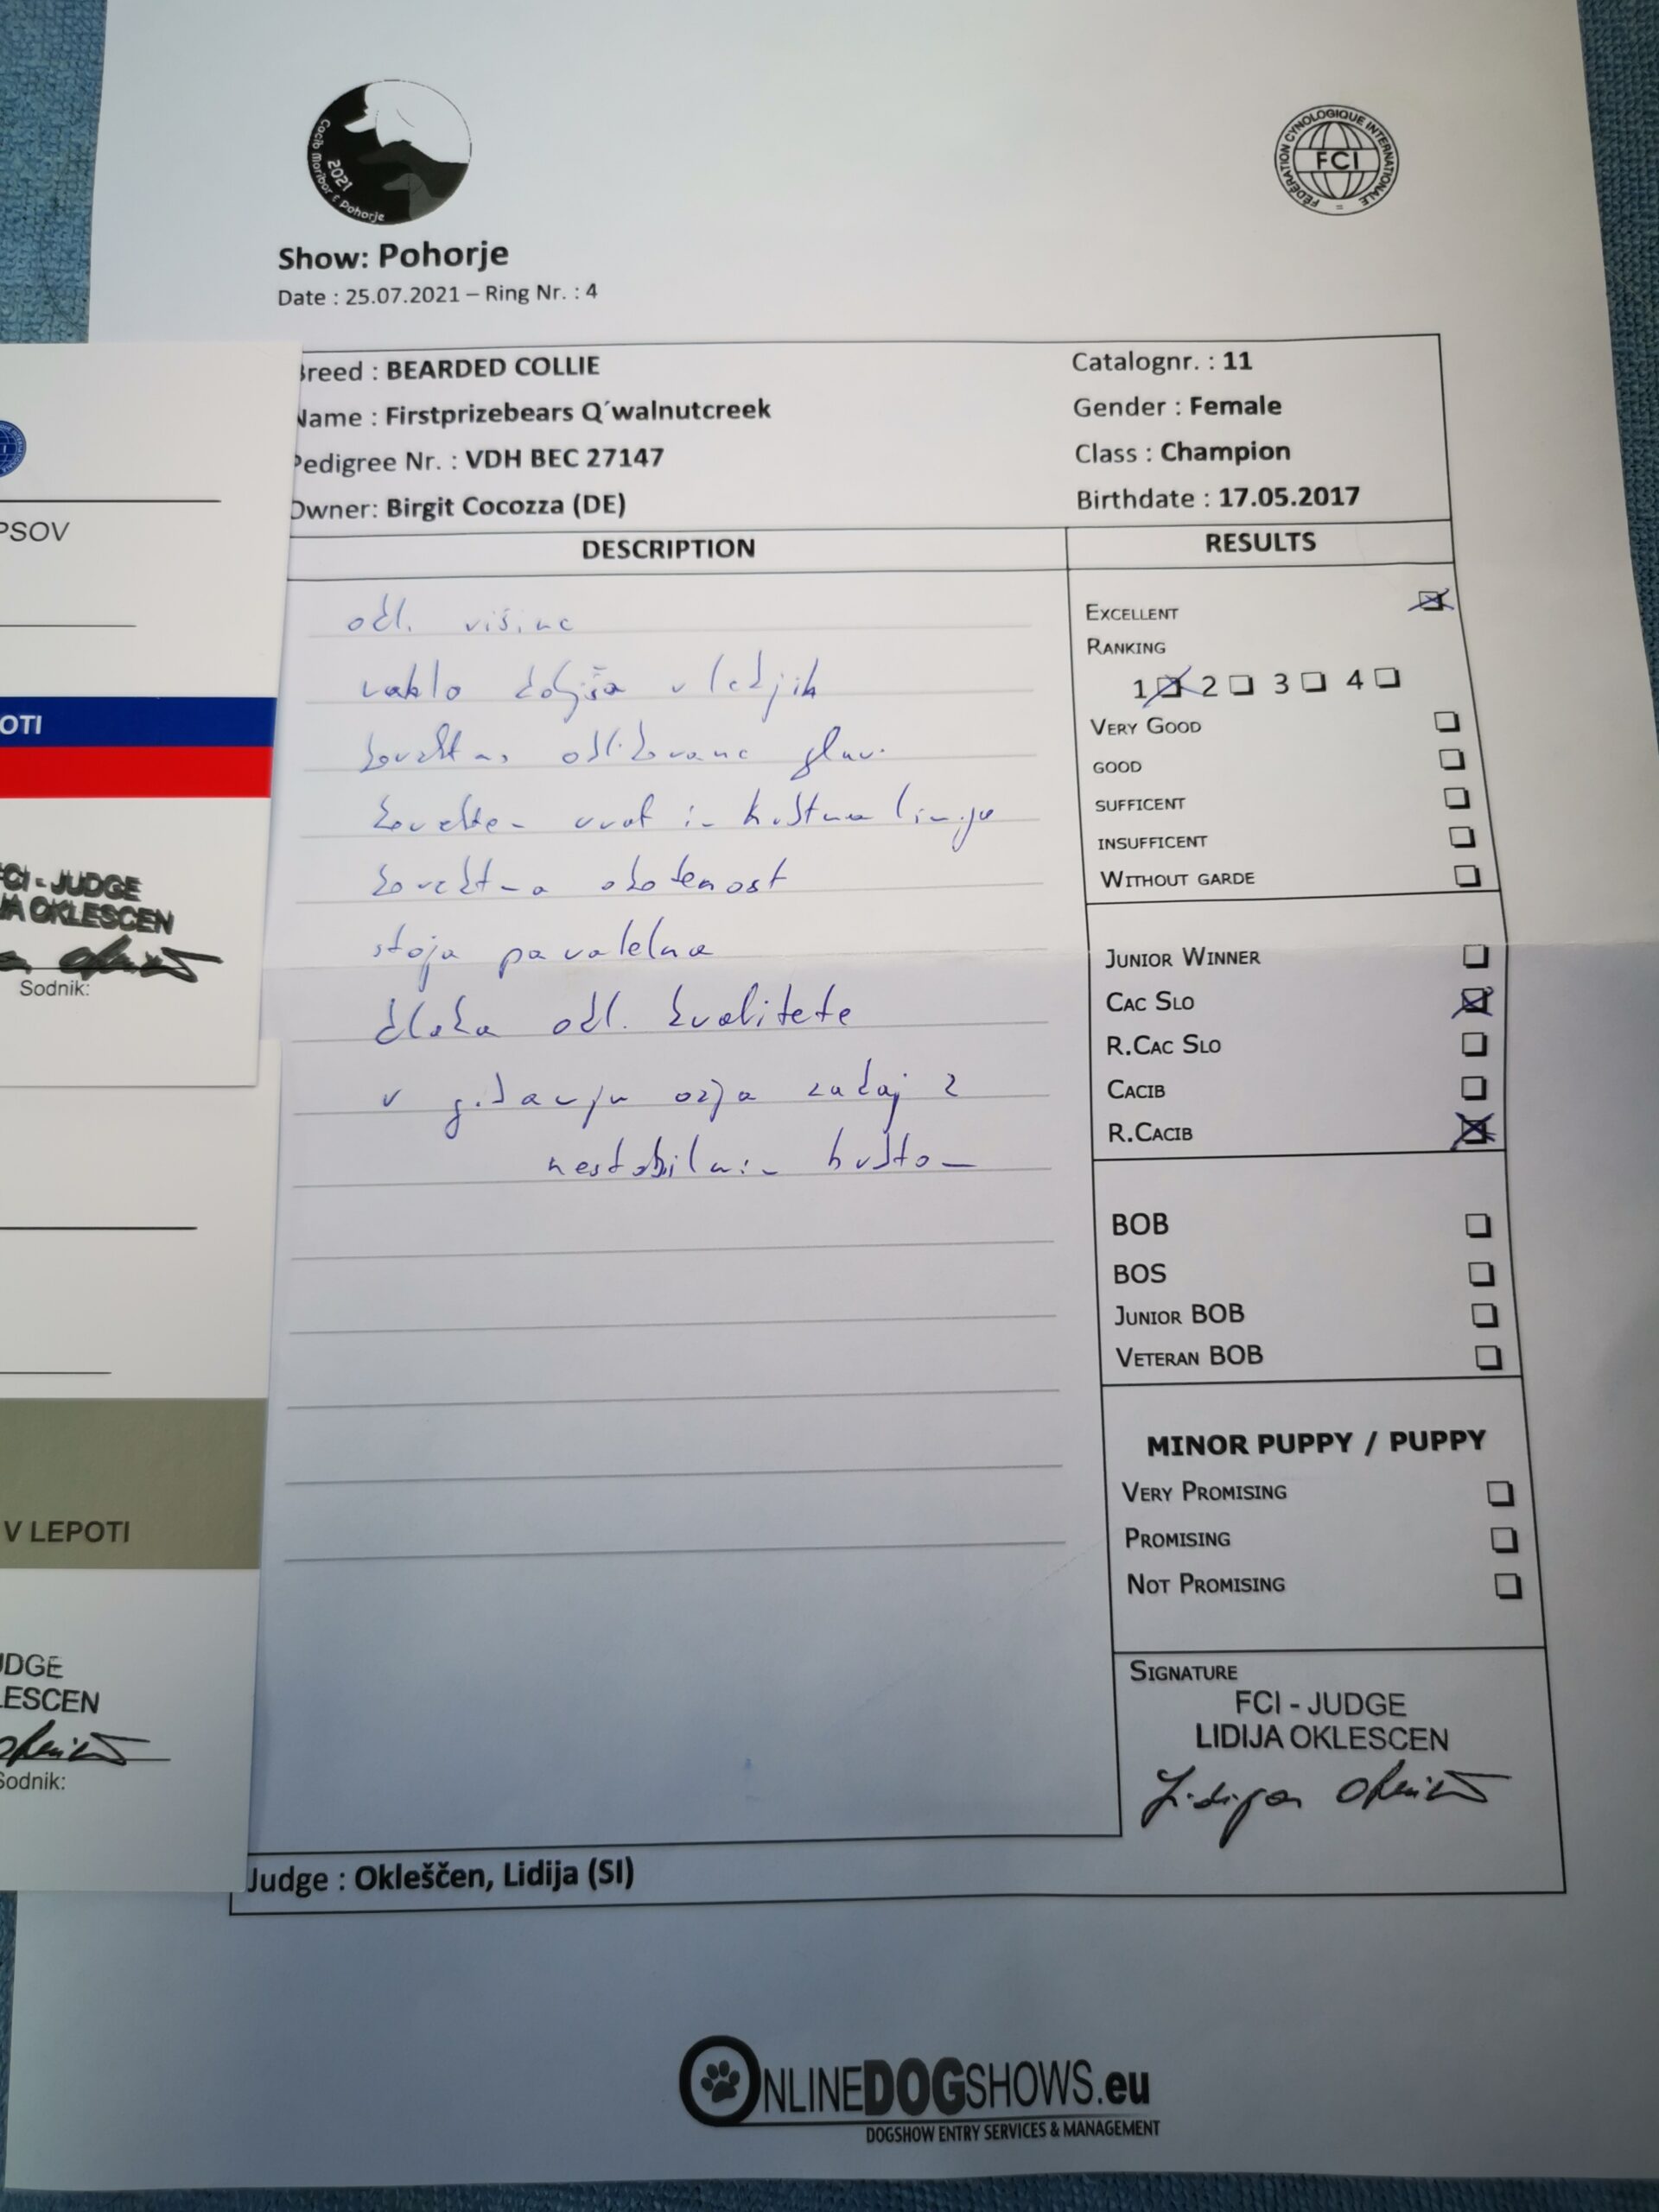 Cacib Maribor & Pohorje
2021
FÉDÉRATION CYNOLOGIQUE INTERNATIONALE
FCI
Show: Pohorje
Date : 25.07.2021 – Ring Nr. : 4
Breed : BEARDED COLLIE
Catalognr. : 11
Name : Firstprizebears Q´walnutcreek
Gender : Female
Pedigree Nr. : VDH BEC 27147
Class : Champion
Owner: Birgit Cocozza (DE)
Birthdate : 17.05.2017
DESCRIPTION
RESULTS
odl. višine
rahlo daljša v ledjih
korektno oblikovana glava
korekten vrat in hrbtna linija
korektna okotenost
stoja paralelna
dlaka odl. kvalitete
v gibanju ozja zadaj z
nestabilnim hrbtom
EXCELLENT
RANKING
1 2 3 4
VERY GOOD
GOOD
SUFFICENT
INSUFFICENT
WITHOUT GARDE
JUNIOR WINNER
CAC SLO
R.CAC SLO
CACIB
R.CACIB
BOB
BOS
JUNIOR BOB
VETERAN BOB
MINOR PUPPY / PUPPY
VERY PROMISING
PROMISING
NOT PROMISING
SIGNATURE
FCI - JUDGE
LIDIJA OKLESCEN
Judge : Okleščen, Lidija (SI)
PSOV
OTI
FCI - JUDGE
IJA OKLESCEN
Sodnik:
V LEPOTI
UDGE
LESCEN
Sodnik:
ONLINEDOGSHOWS.eu
DOGSHOW ENTRY SERVICES & MANAGEMENT